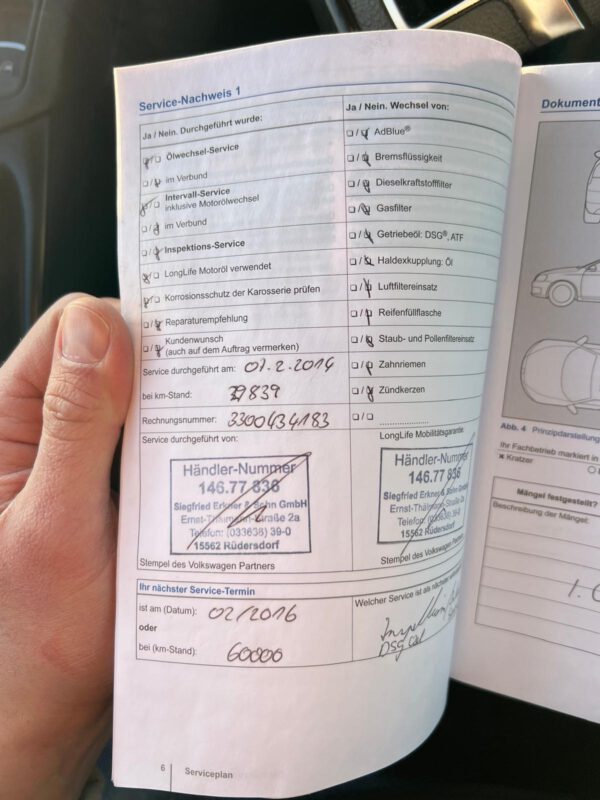 Service-Nachweis 1
Ja / Nein. Durchgeführt wurde:
Ölwechsel-Service
im Verbund
Intervall-Service
inklusive Motorölwechsel
im Verbund
Inspektions-Service
LongLife Motoröl verwendet
Korrosionsschutz der Karosserie prüfen
Reparaturempfehlung
Kundenwunsch
(auch auf dem Auftrag vermerken)
Service durchgeführt am: 07.2.2014
bei km-Stand: 39839
Rechnungsnummer: 3300434183
Service durchgeführt von:
Händler-Nummer
146.77 836
Siegfried Erkner & Sohn GmbH
Ernst-Thälmann-Straße 2a
Telefon: (033638) 39-0
15562 Rüdersdorf
Stempel des Volkswagen Partners
Ja / Nein. Wechsel von:
AdBlue®
Bremsflüssigkeit
Dieselkraftstofffilter
Gasfilter
Getriebeöl: DSG®, ATF
Haldexkupplung: Öl
Luftfiltereinsatz
Reifenfüllflasche
Staub- und Pollenfiltereinsatz
Zahnriemen
Zündkerzen
LongLife Mobilitätsgarantie:
Händler-Nummer
146.77 836
Siegfried Erkner & Sohn GmbH
Ernst-Thälmann-Straße 2a
Telefon: (033638) 39-0
15562 Rüdersdorf
Stempel des Volkswagen Partners
Ihr nächster Service-Termin
ist am (Datum): 02/2016
oder
bei (km-Stand): 60000
Welcher Service ist als nächster
DSG
6 Serviceplan
Dokument
Abb. 4 Prinzipdarstellung
Ihr Fachbetrieb markiert in
Kratzer
Mängel festgestellt?
Beschreibung der Mängel: